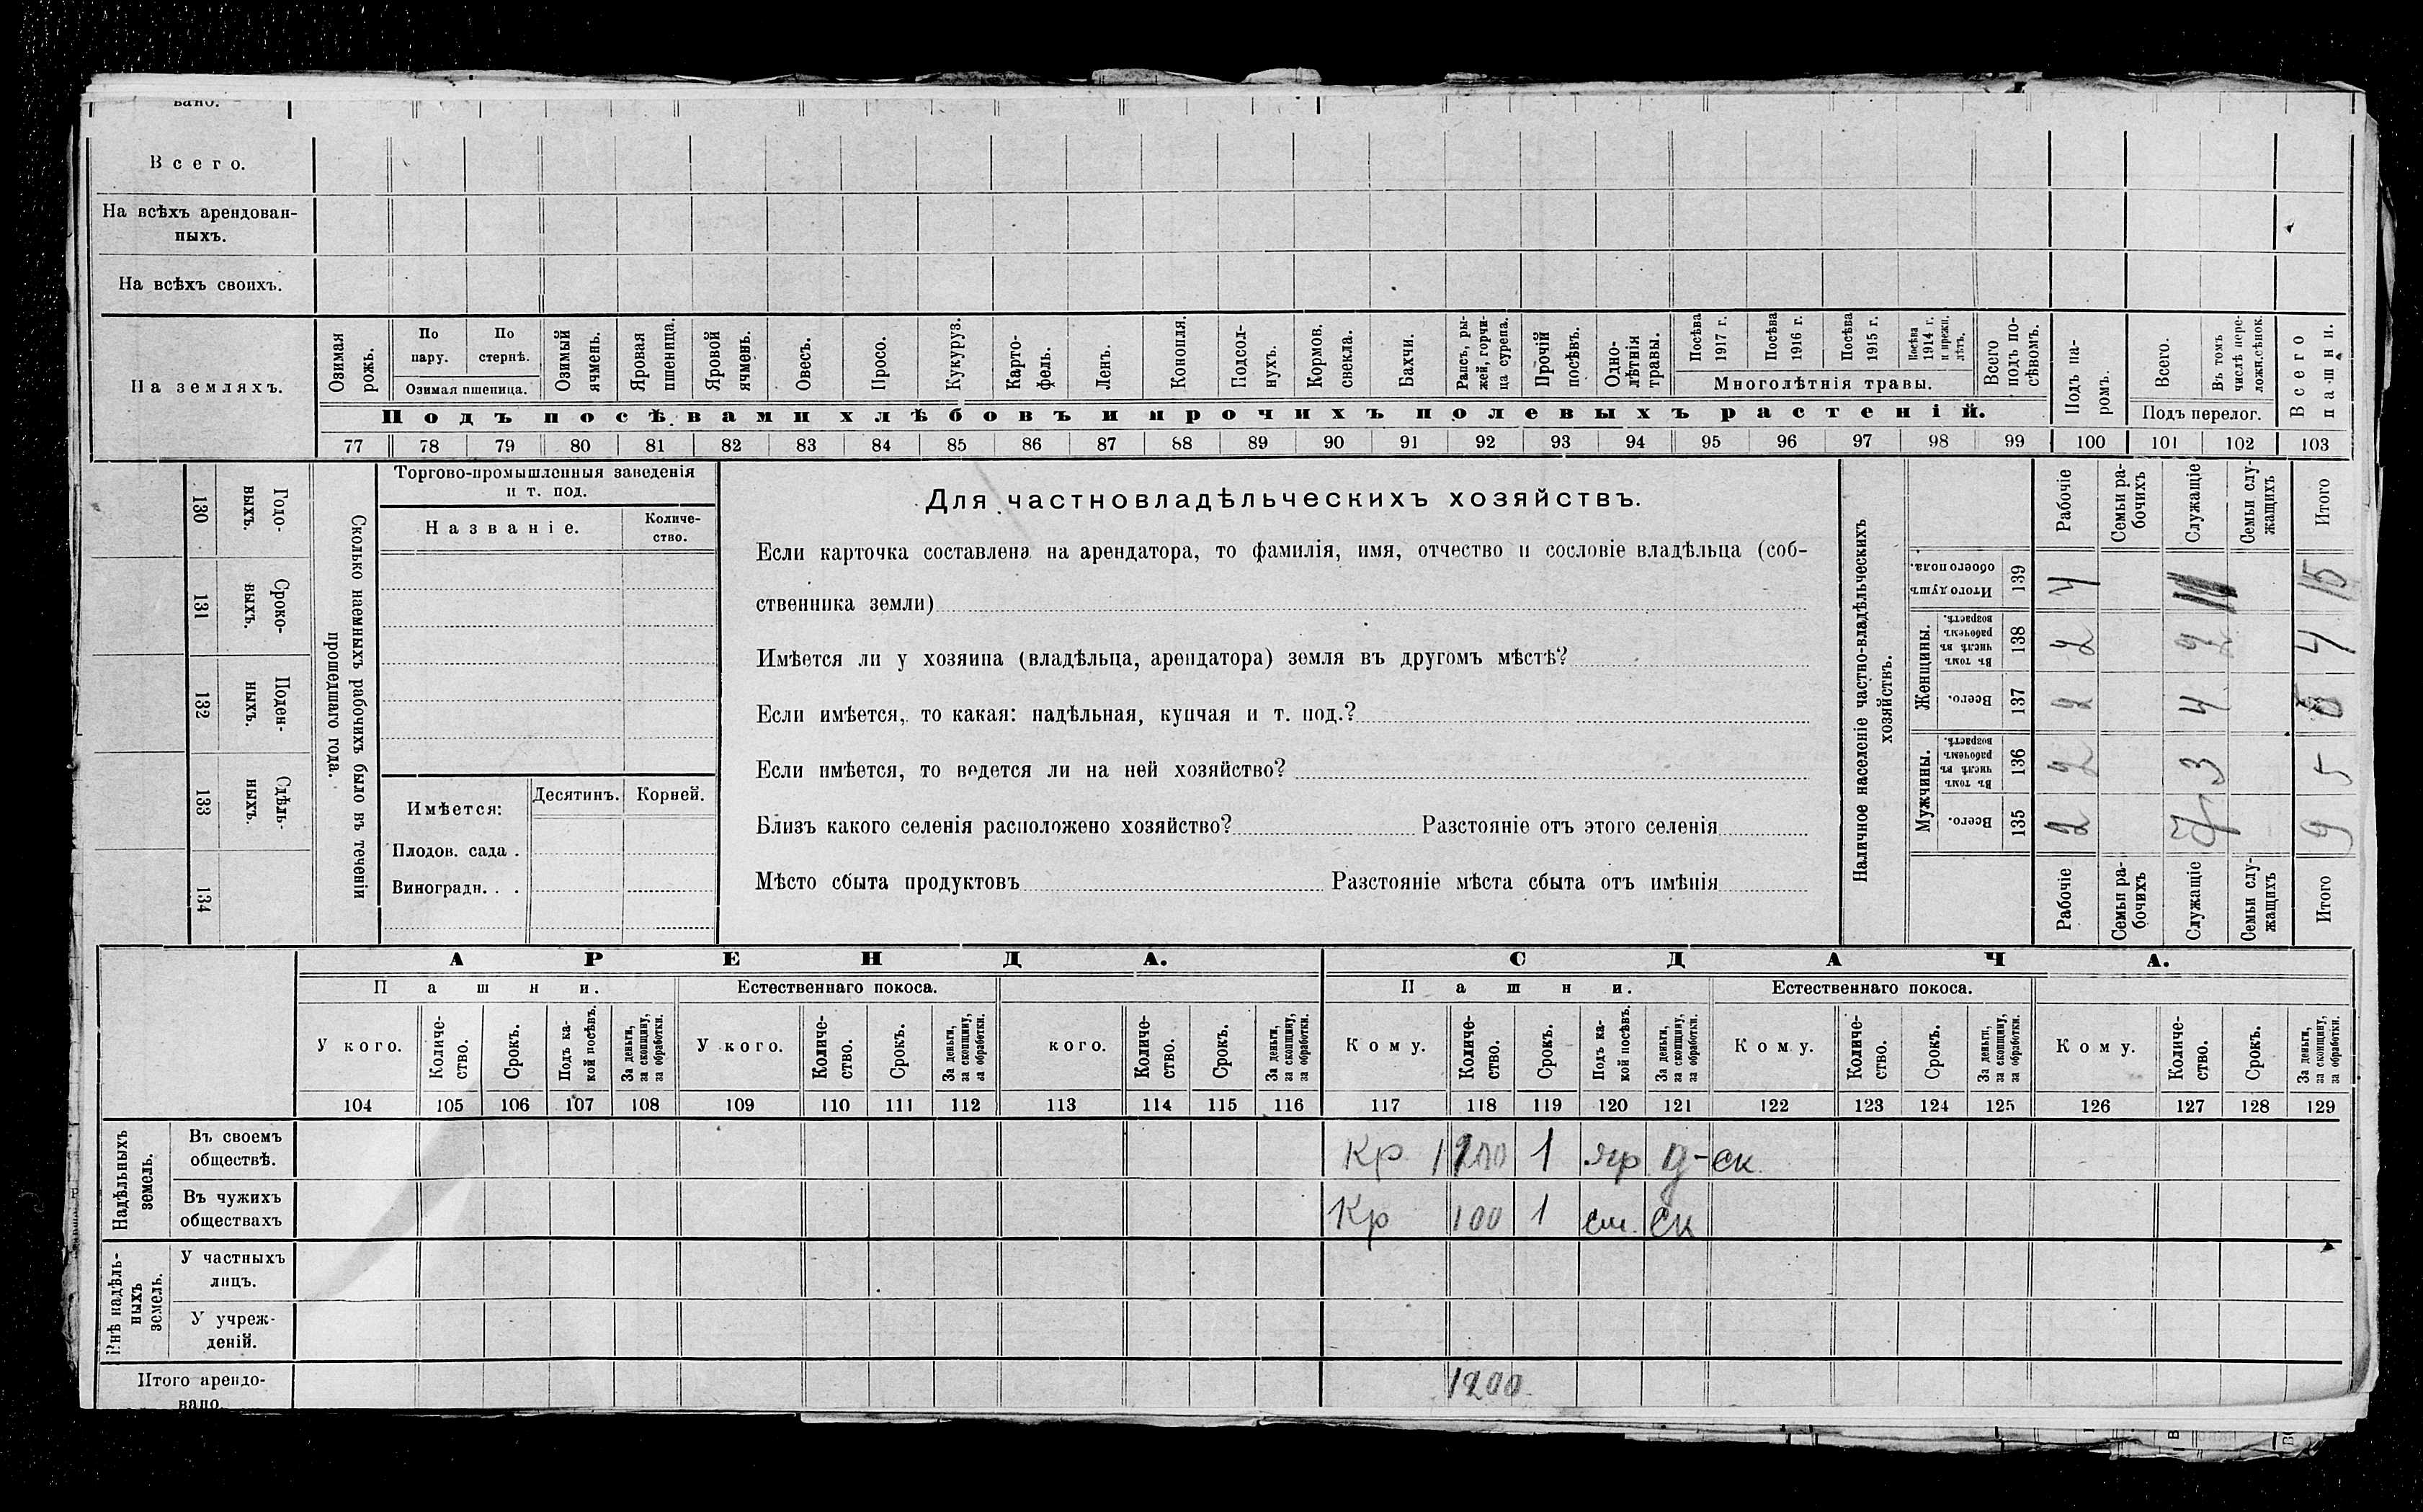 вано.
Всего.
На всѣхъ арендован-
ныхъ.
На всѣхъ своихъ.
На земляхъ.
Озимая рожь.
По пару.
По стернѣ.
Озимая пшеница.
Озимый ячмень.
Яровая пшеница.
Яровой ячмень.
Овесъ.
Просо.
Кукуруз.
Карто-
фель.
Ленъ.
Конопля.
Подсол-
нухъ.
Кормов. свекла.
Бахчи.
Рапсъ, ры-
жей, горчи-
ца сурепа.
Прочій посѣвъ.
Одно-
лѣтнія травы.
Посѣва 1917 г.
Посѣва 1916 г.
Посѣва 1915 г.
Посѣва 1914 г. и прежн. лѣтъ.
Многолѣтнія травы.
Всего подъ по-
сѣвомъ.
Подъ па-
ромъ.
Всего.
Въ томъ числѣ пере-
ложн. сѣнок.
Подъ перелог.
Всего пашни.
Подъ посѣвами хлѣбовъ и прочихъ полевыхъ растеній.
77 78 79 80 81 82 83 84 85 86 87 88 89 90 91 92 93 94 95 96 97 98 99 100 101 102 103
130 Годо-
выхъ.
131 Сроко-
выхъ.
132 Поден-
ныхъ.
133 Сдѣль-
ныхъ.
134
Сколько наемныхъ рабочихъ было въ теченіи
прошедшаго года.
Торгово-промышленныя заведенія
и т. под.
Названіе.
Количе-
ство.
Имѣется:
Десятинъ.
Корней.
Плодов. сада .
Виноградн. . .
Для частновладѣльческихъ хозяйствъ.
Если карточка составлена на арендатора, то фамилія, имя, отчество и сословіе владѣльца (соб-
ственника земли)
Имѣется ли у хозяина (владѣльца, арендатора) земля въ другомъ мѣстѣ?
Если имѣется, то какая: надѣльная, купчая и т. под.?
Если имѣется, то ведется ли на ней хозяйство?
Близъ какого селенія расположено хозяйство? Разстояніе отъ этого селенія
Мѣсто сбыта продуктовъ Разстояніе мѣста сбыта отъ имѣнія
Наличное население частно-владѣльческихъ
хозяйствъ.
Рабочіе
Семьи ра-
бочихъ
Служащіе
Семьи слу-
жащихъ
Итого
Итого душъ обоего пола.
139
4 15
Женщины.
Въ томъ числѣ въ рабочемъ возрастѣ.
138
2 2 4
Всего.
137
2 4
Мужчины.
Въ томъ числѣ въ рабочемъ возрастѣ.
136
2 3 5
Всего.
135
2 7 9
Рабочіе
Семьи ра-
бочихъ
Служащіе
Семьи слу-
жащихъ
Итого
АРЕНДА.
СДАЧА.
Пашни.
Естественнаго покоса.
Пашни.
Естественнаго покоса.
У кого.
Количе-
ство.
Срокъ.
Подъ ка-
кой посѣвъ.
За деньги, за скопщину, за обработки.
У кого.
Количе-
ство.
Срокъ.
За деньги, за скопщину, за обработки.
кого.
Количе-
ство.
Срокъ.
За деньги, за скопщину, за обработки.
Кому.
Количе-
ство.
Срокъ.
Подъ ка-
кой посѣвъ.
За деньги, за скопщину, за обработки.
Кому.
Количе-
ство.
Срокъ.
За деньги, за скопщину, за обработки.
Кому.
Количе-
ство.
Срокъ.
За деньги, за скопщину, за обработки.
104 105 106 107 108 109 110 111 112 113 114 115 116 117 118 119 120 121 122 123 124 125 126 127 128 129
Надѣльныхъ
земель.
Въ своемъ
обществѣ.
Кр 1 яр д-ск
Въ чужихъ
обществахъ
Кр 100 1 см. ск
Внѣ надѣль-
ныхъ
земель.
У частныхъ
лицъ.
У учреж-
деній.
Итого арендо-
вано.
1200